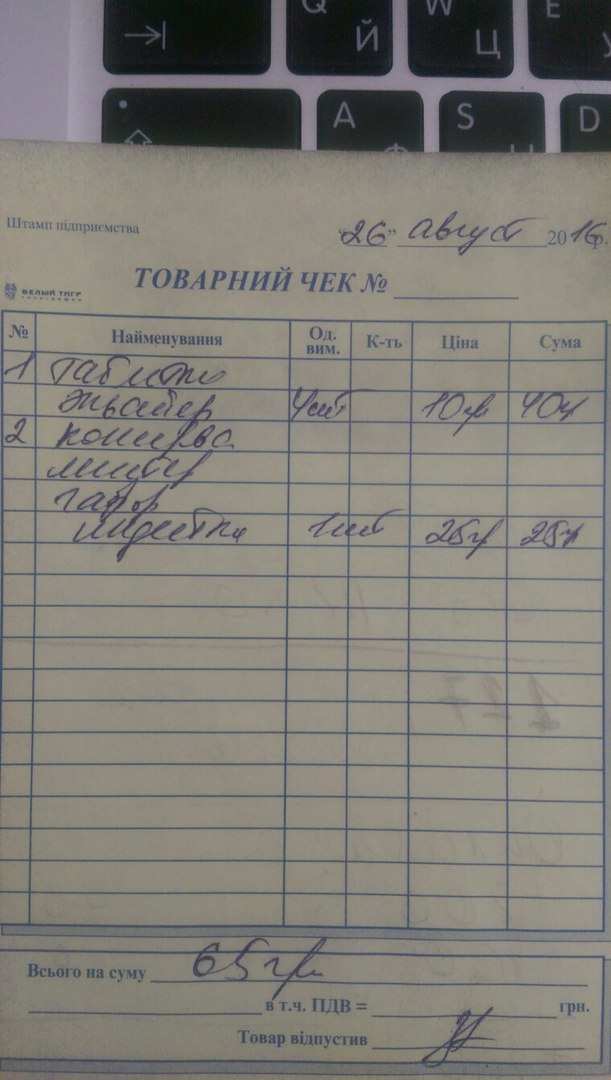 Q Й W Ц E
A S D
Штамп підприємства
"26" август 2016р.
БЕЛЫЙ ТИГР
ТОВАРНИЙ ЧЕК №
№ Найменування Од. вим. К-ть Ціна Сума
1
4шт 10гр 40гр
2 консерва
гастор
индейка 1шт 25гр 25гр
Всього на суму 65 грн
в т.ч. ПДВ = грн.
Товар відпустив